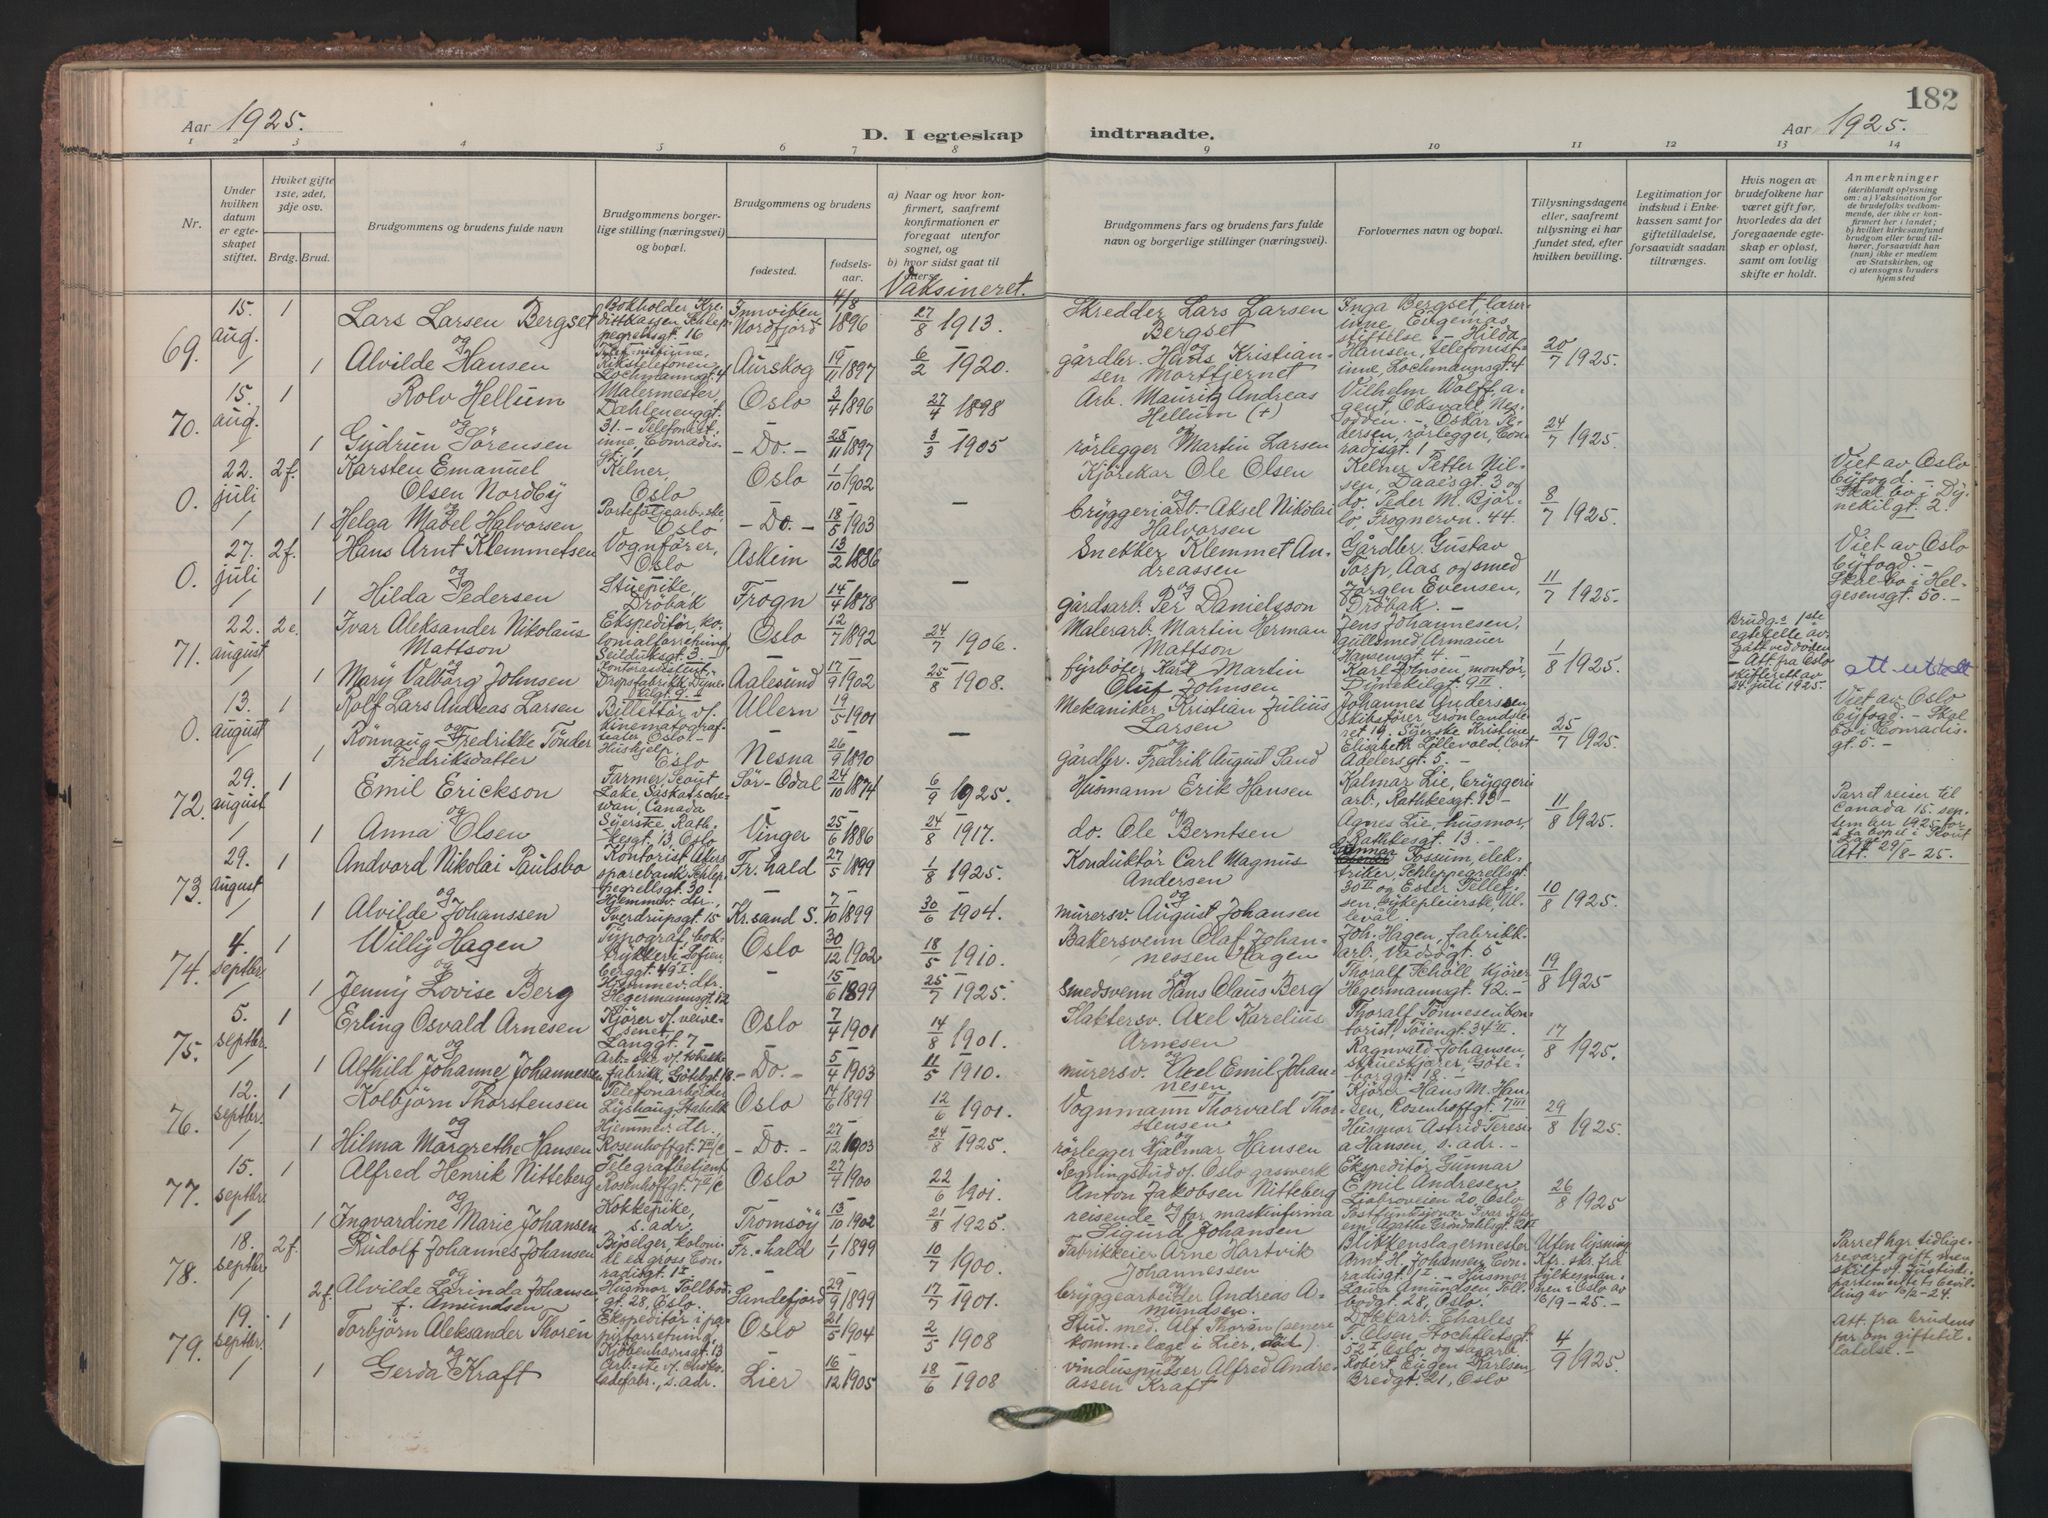 182
Aar 1925.
D. I egteskap indtraadte.
Aar 1925.
1 2 3 4 5 6 7 8 9 10 11 12 13 14
Nr.
Under hvilken datum er egteskapet stiftet.
Hviket gifte 1ste, 2det, 3dje osv.
Brdg. Brud.
Brudgommens og brudens fulde navn
Brudgommens borgerlige stilling (næringsvei) og bopæl.
Brudgommens og brudens
fødested.
fødselsaar.
a) Naar og hvor konfirmert, saafremt konfirmationen er foregaat utenfor sognet, og
b) hvor sidst gaat til
Vaksineret.
Brudgommens fars og brudens fars fulde navn og borgerlige stillinger (næringsvei).
Forlovernes navn og bopæl.
Tillysningsdagene eller, saafremt tillysning ei har fundet sted, efter hvilken bevilling.
Legitimation for indskud i Enkekassen samt for giftetilladelse, forsaavidt saadan tiltrænges.
Hvis nogen av brudefolkene har været gift før, hvorledes da det foregaaende egteskap er opløst, samt om lovlig skifte er holdt.
Anmerkninger
(deriblandt oplysning om: a) Vaksination for de brudefolks vedkommende, der ikke er konfirmert her i landet; b) hvilket kirkesamfund brudgom eller brud tilhører, forsaavidt han (hun) ikke er medlem av Statskirken, og c) utensogns bruders hjemsted
69. 15. aug. 1 Lars Larsen Bergset Bokholder Kredittkassen Schleppegrelsgt. 16 Innviken Nordfjord 4/8 1896 27/8 1913 Skredder Lars Larsen Bergset Inga Bergset, lærerinne, Eugenias stiftelse. - Hilda Hansen, telefonistinne, Lochmannsgt. 4 20/7 1925.
og
1 Alvilde Hansen Rikstelefonen, Lochmannsgt. 4 Aurskog 19/11 1897 6/2 1920. gårdbr. Hans Kristiansen Morttjernet
70. 15. aug. 1 Rolv Hellum Malermester, Dahlenenggt. 31. - Oslo 3/4 1896 27/4 1898 Arb. Mauritz Andreas Hellum (+) Vilhelm Wolff, agent, Oksvall, Nesodden. - Oskar Pedersen, rørlegger, Conradisgt. 1 24/7 1925.
og
1 Gudrun Sørensen Telefonistinne, Conradisgt. 1 - Do. - 28/11 1897 3/3 1905 rørlegger Martin Larsen
0. 22. juli 2 f. Karsten Emanuel Olsen Nordby Kelner, Oslo Oslo 1/10 1902 - Kjørekar Ole Olsen Kelner Petter Nilsen, Daaesgt. 3 og do. Peder M. Bjørlo, Frognervn. 44. 8/7 1925. Viet av Oslo Byfogd. - Skal bo i Dynekilgt. 2.
og
1 Helga Mabel Halvorsen Portefoljearb.ske, Oslo - Do. - 18/5 1903 bryggeriarb. Aksel Nikolai Halvorsen
0. 27. juli 2 f. Hans Arnt Klemmetsen Vognfører, Oslo Askim 13/2 1886 - Snekker Klemmet Andreassen Gårdbr. Gustav Torp, Aas og smed Jørgen Evensen, Drøbak. - 11/7 1925. Viet av Oslo byfogd. - Skal bo i Helgesensgt. 50. -
og
1 Hilda Pedersen Stuepike, Drøbak Frogn 14/4 1878 gårdsarb. Per Danielsson
71. 22. august 2 e. Ivar Aleksander Nikolaus Mattson Ekspeditør, kolonialforretning, Seilduksgt. 3. - Oslo 12/7 1892 24/7 1906. Malerarb. Martin Herman Mattson Jens Johannesen, gullsmed Armauer Hansensgt. 4 - Karl Johnsen, montør, Dynekilgt. 9 II 1/8 1925. Brudg.s 1ste egtefelle avgått ved døden - Att. fra Oslo skifterett av 24. juli 1925. att. utstedt
og
1 Mary Valborg Johnsen Kontorassistent Dropsfabrikk, Dynekilgt. 9 II Aalesund 17/9 1902 25/8 1908. fyrbøter Karl Martin Oluf Johnsen
0. 13. august 1 Rolf Lars Andreas Larsen Billettør v. kinematografteater, Oslo. - Ullern 19/5 1901 - Mekaniker Kristian Julius Larsen Johannes Anderssen, skibsfører, Grønlandsleret 19, Syerske Kristine Elisabeth Lillevold, Cort Adelersgt. 5. - 25/7 1925. Viet av Oslo Byfogd. - Skal bo i Conradisgt. 5. -
og
1 Rønnaug Fredrikke Tønder Fredriksdatter Hushjelp, Oslo Nesna 26/9 1890 gårdbr. Fredrik August Sand
72. 29. august 1 Emil Erickson Farmer, Scout Lake, Saskatschewan, Canada Sør-Odal 24/10 1874 6/9 1925. Husmann Erik Hansen Kalmar Lie, bryggeriarb., Rathkesgt. 13 - Agnes Lie, husmor, Rathkesgt. 13. - 11/8 1925. Parret reiser til Canada 15. september 1925 for å ta bopel i Scout Lake. Att. 29/8-25.
og
1 Anna Olsen Syerske Rathkegt. 13, Oslo Vinger 25/6 1886 24/8 1917. do. Ole Berntsen
73. 29. august 1 Andvord Nikolai Paulsbo Kontorist Akers sparebank Schleppegrellsgt. 30. Fr.hald 27/5 1899 1/8 1925. Konduktør Carl Magnus Andersen Gunnar Fossum, elektriker, Schleppegrellsgt. 30 II og Ester Tellefsen, sykepleierske, Ullevål. 10/8 1925.
og
1 Alvilde Johanssen Hjemmev. dtr., Sverdrupsgt. 15 Kr.sand S. 7/10 1899 30/6 1904. murersv. August Johansen
74. 4. septbr. 1 Willy Hagen Typograf, boktrykkeri Sofienberggt. 49 I Oslo 30/12 1902 18/5 1910. Bakersvenn Olaf Johannessen Hagen Joh. Hagen, fabrikkarb., Vadsøgt. 5 Thoralf Schøll, kjører Hegermannsgt. 92. - 19/8 1925
og
1 Jenny Lovise Berg Hjemmev. dtr. Hegermannsgt. 12 - 15/6 1899 25/7 1925. Smedsvenn Hans Olaus Berg
75. 5. septbr. 1 Erling Osvald Arnesen Kjører v. veivesenet Langgt. 7 - Oslo 7/4 1901 14/8 1901. Slaktersv. Axel Karelius Arnesen Thoralf Tønnesen kontorist, Tøiengt. 34 II. Ragnvald Johansen, skueskjører, Gøteborggt. 18. - 17/8 1925.
og
1 Alfhild Johanne Johannessen Arb.ske v. tobakkfabrikk, Gøtebgt. 18. - Do. - 5/4 1903 11/5 1910. murersv. Axel Emil Johannesen
76. 12. septbr. 1 Kolbjørn Thorstensen Telefonarbeider Lyshaug, Stabekk Oslo 14/6 1899 12/6 1901. Vognmann Thorvald Thorstensen Kjører Hans M. Hansen, Rosenhoffgt. 7 III Husmor Astrid Teresia Hansen, s. adr. - 29/8 1925.
og
1 Hilma Margrethe Hansen Hjemmev. dtr., Rosenhoffgt. 7 III/c - Do. - 27/12 1903 24/8 1925. rørlegger Hjalmar Hansen
77. 15. septbr. 1 Alfred Henrik Nitteberg Telegrafbetjent Rosenhoffgt. 7 II/c Oslo 27/4 1900 22/6 1901. Regningsbud v. Oslo gaswerk Anton Jakobsen Nitteberg Ekspeditør Gunnar Emil Andresen Ljabroveien 20, Oslo Postfunksjonær Ivar Agathe Grøndahlsgt. 26/8 1925
og
1 Ingvardine Marie Johansen Kokkepike, s. adr. Tromsøy 13/10 1902 21/8 1925. reisende for maskinfirma Sigurd Johansen
78. 18. septbr. 2 f. Rudolf Johannes Johansen Byselger, kolonial en gross Conradisgt. 1 I Fr.hald 1/7 1899 10/7 1900. Fabrikkeier Arne Hartvik Johannessen Blikkenslagermester Arnt H. Johansen, Conradisgt. 1 I - Husmor Laura Amundsen, Tollbodgt. 28, Oslo. Uten lysning Kfr. skr. fra fylkesmannen i Oslo av 16/9-25. - Parret har tidligere været gift men skilt v. Justisdepartementets bevilling av 16/2-24.
og
2 f. Alvilde Larinda Johansen f. Amundsen Husmor Tollbodgt. 28, Oslo. Sandefjord 29/9 1899 17/7 1901. bryggearbeider Andreas Amundsen.
79. 19. septbr. 1 Torbjørn Aleksander Thorén Ekspeditør i papirforretning, Kjøbenhavnsgt. 13 Oslo 21/5 1904 2/5 1908 Stud. med. Alf Thorén (senere komm. læge i Lier, død). Dokkarb. Charles T. Olsen, Stockfletsgt. 52 I Oslo, og sagarb. Robert Eugen Karlsen, Bredgt. 21, Oslo 4/9 1925. Att. fra brudens far om giftetillatelse. -
og
1 Gerda Kraft Arb.ske v. sjokoladefabr., s. adr. Lier 16/12 1905 18/6 1908 vinduspusser Alfred Andreassen Kraft